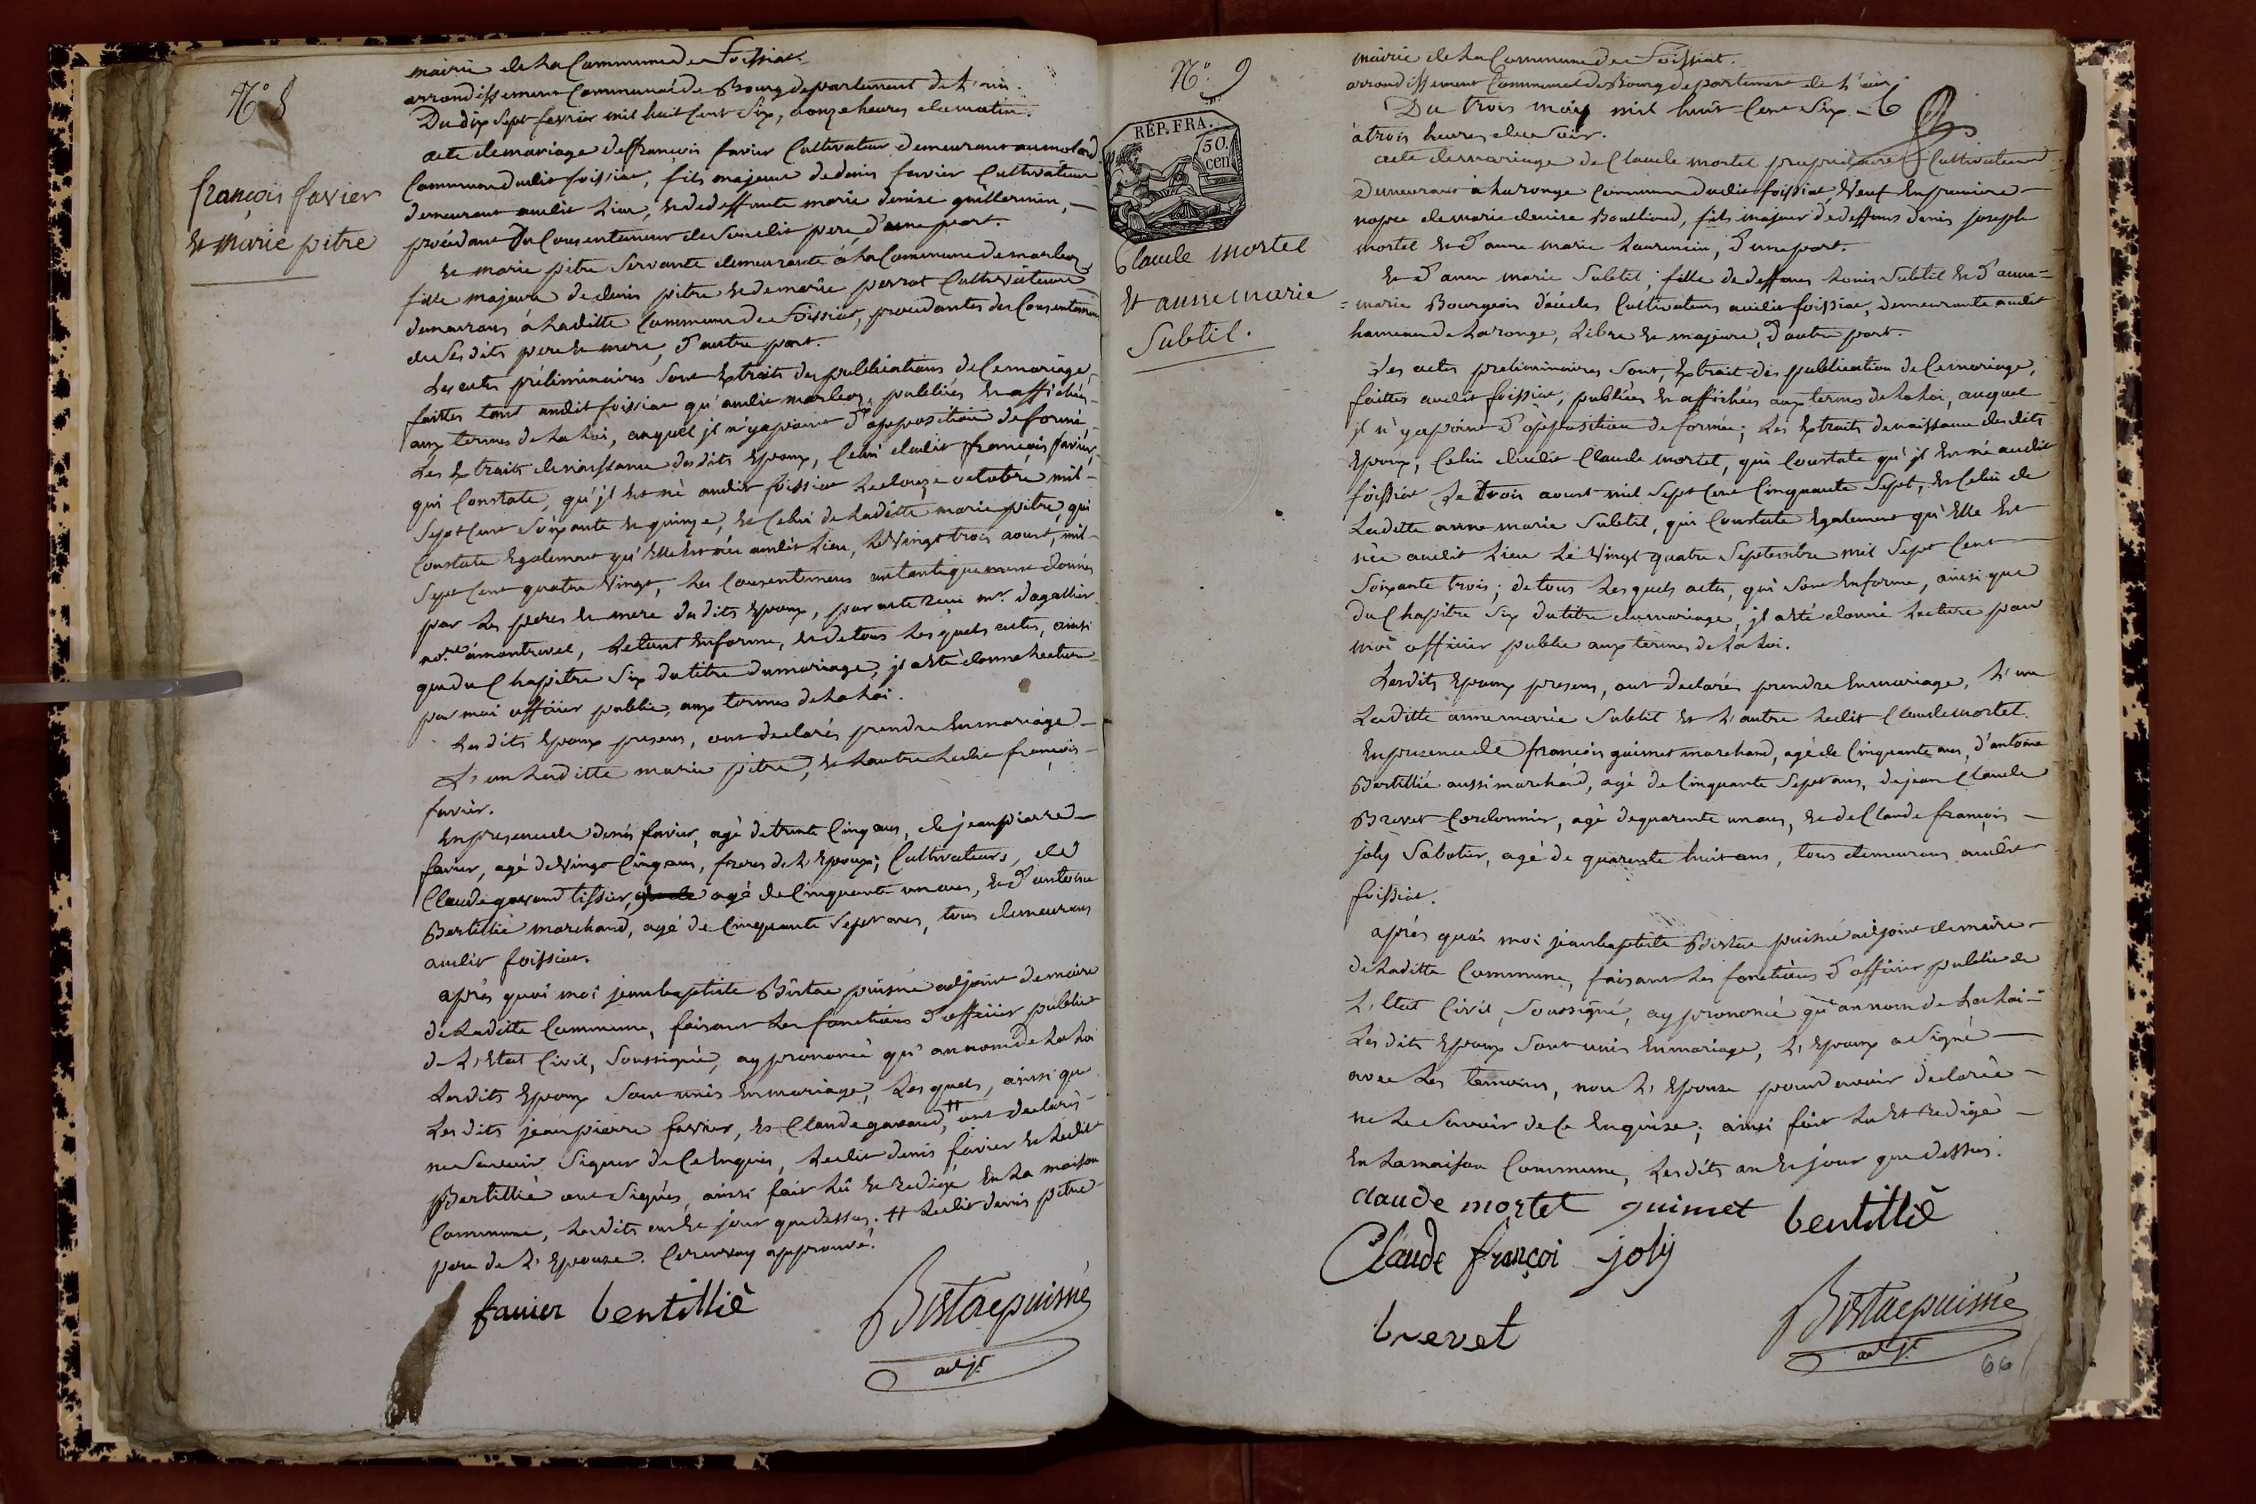 N.o 8
françois favier
Et marie pitre
mairie de La Commune de Foissiat.
arrondissement Communal de Bourg departement de L'ain.
Du dix Sept fevrier mil huit Cent Six, onze heures du matin.
acte de mariage de françois favier Cultivateur demeurant au molard
Commune dudit foissiat, fils majeur de denis favier Cultivateur
demeurant audit Lieu, Et de deffunte marie denise guillermin,
procédant Du Consentement de Sondit pere, d'une part.
Et marie pitre Servante demeurante à La Commune de marboz,
fille majeure de denis pitre Et de marie perrat Cultivateurs
demeurans à Laditte Commune de Foissiat, procedante du Consentement
de Sesdits pere Et mere, d'autre part.
Les actes préliminaires Sont Extraits des publications de Ce mariage,
faittes tant audit foissiat qu'audit marboz, publiées Et affichées
aux termes de La Loi, auquel il n'y a point d'opposition de formé,
Les Extraits de naissance desdits Epoux, Celui dudit françois favier,
qui Constate, qu'il Est né audit foissiat Le douze octobre mil
Sept Cent Soixante Et quinze, Et Celui de Laditte marie pitre, qui
Constate Egalement qu'Elle Est née audit Lieu, Le Vingt trois aoust, mil
Sept Cent quatre Vingt, Les Consentemens autantiquement donnés
par Les peres Et mere desdits Epoux, par acte reçu mr. dagallier
nore. à montrevel, Le tout En forme, Et de tous Lesquels actes, ainsi
que du Chapitre Six du titre du mariage, il a Eté donné Lecture
par moi officier public, aux termes de La Loi.
Lesdits Epoux presens, ont declarés prendre En mariage
L'un Laditte marie pitre, Et Lautre Ledit françois
favier.
En presence de denis favier, agé de trente Cinq ans, de jean pierre
favier, agé de Vingt Cinq ans, freres de L'Epoux, Cultivateurs, de
Claude gavand tissier, agé de Cinquante un ans, Et d'antoine
Bertillié marchand, agé de Cinquante Sept ans, tous demeurans
audit foissiat.
après quoi moi jean baptiste Bistac puisné adjoint de maire
de Laditte Commune, faisant Les fonctions d'officier public
de L'Etat Civil, Soussigné, ay prononcé qu'au nom de La Loi
Lesdits Epoux Sont unis En mariage, Lesquels, ainsi que
Lesdits jean pierre favier, Et Claude gavand, # ont declarés
ne Savoir Signer de Ce Enquis, Ledit denis favier Et Ledit
Bertillié ont Signés, ainsi fait Lû Et Redigé En La maison
Commune, Lesdits an Et jour que dessus. # Ledit denis pitre
pere de L'Epouse. Ce renvoy approuvé.
favier bertillié
Bistac puisné
adjt.
N.o 9
REP. FRA.
50.
cen.
Claude Mortel
Et anne marie
Subtil.
mairie de La Commune de Foissiat.
arrondissement Communal de Bourg departement de L'ain
Du trois mars mil huit Cent Six
à trois heures du Soir.
acte de mariage de Claude mortel propriétaire Cultivateur
Demeurant à La ronge Commune dudit foissiat, Veuf En premiere
nopce de marie denise Bouilloud, fils majeur de deffuns denis joseph
mortel Et d'anne marie Laurencin, d'une part.
Et d'anne marie Subtil, fille de deffuns Louis Subtil Et d'anne=
=marie Bourgeois décédés Cultivateurs audit foissiat, demeurante audit
hameau de La ronge, Libre Et majeure, d'autre part.
Les actes preliminaires Sont, Extrait des publication de Ce mariage,
faittes audit foissiat, publiées Et affichées aux termes de La Loi, auquel
il n'y a point d'opposition de formée; Les Extraits de naissance desdits
Epoux, Celui dudit Claude mortel, qui Constate qu'il Est né audit
foissiat Le trois aoust mil Sept Cent Cinquante Sept, Et Celui de
Laditte anne marie Subtil, qui Constate Egalement qu'Elle Est
née audit Lieu Le Vingt quatre Septembre mil Sept Cent
Soixante trois; de tous Lesquels actes, qui Sont En forme, ainsi que
du Chapitre Six du titre du mariage, il a Eté donné Lecture par
moi officier public aux termes de La Loi.
Lesdits Epoux presens, ont declarés prendre En mariage, L'un
Laditte anne marie Subtil Et L'autre Ledit Claude mortel.
En presence de françois guimet marchand, agé de Cinquante ans, d'antoine
Bertillié aussi marchand, agé de Cinquante Sept ans, de jean Claude
Brevet Cordonnier, agé de quarente un ans, Et de Claude françois
joly Sabotier, agé de quarente huit ans, tous demeurans audit
foissiat.
après quoi moi jean baptiste Bistac puisné adjoint de maire
de Laditte Commune, faisant Les fonctions d'officier public de
L'Etat Civil, Soussigné, ay prononcé qu'au nom de La Loi
Lesdits Epoux Sont unis En mariage, L'Epoux a Signé
avec Les temoins, non L'Epouse pour avoir declarée
ne Le Savoir de Ce Enquise; ainsi fait Lu Et Redigé
En La maison Commune, Lesdits an Et jour que dessus.
claude mortel guimet bertillié
Claude françoi joly
brevet
Bistac puisné
adjt.
66